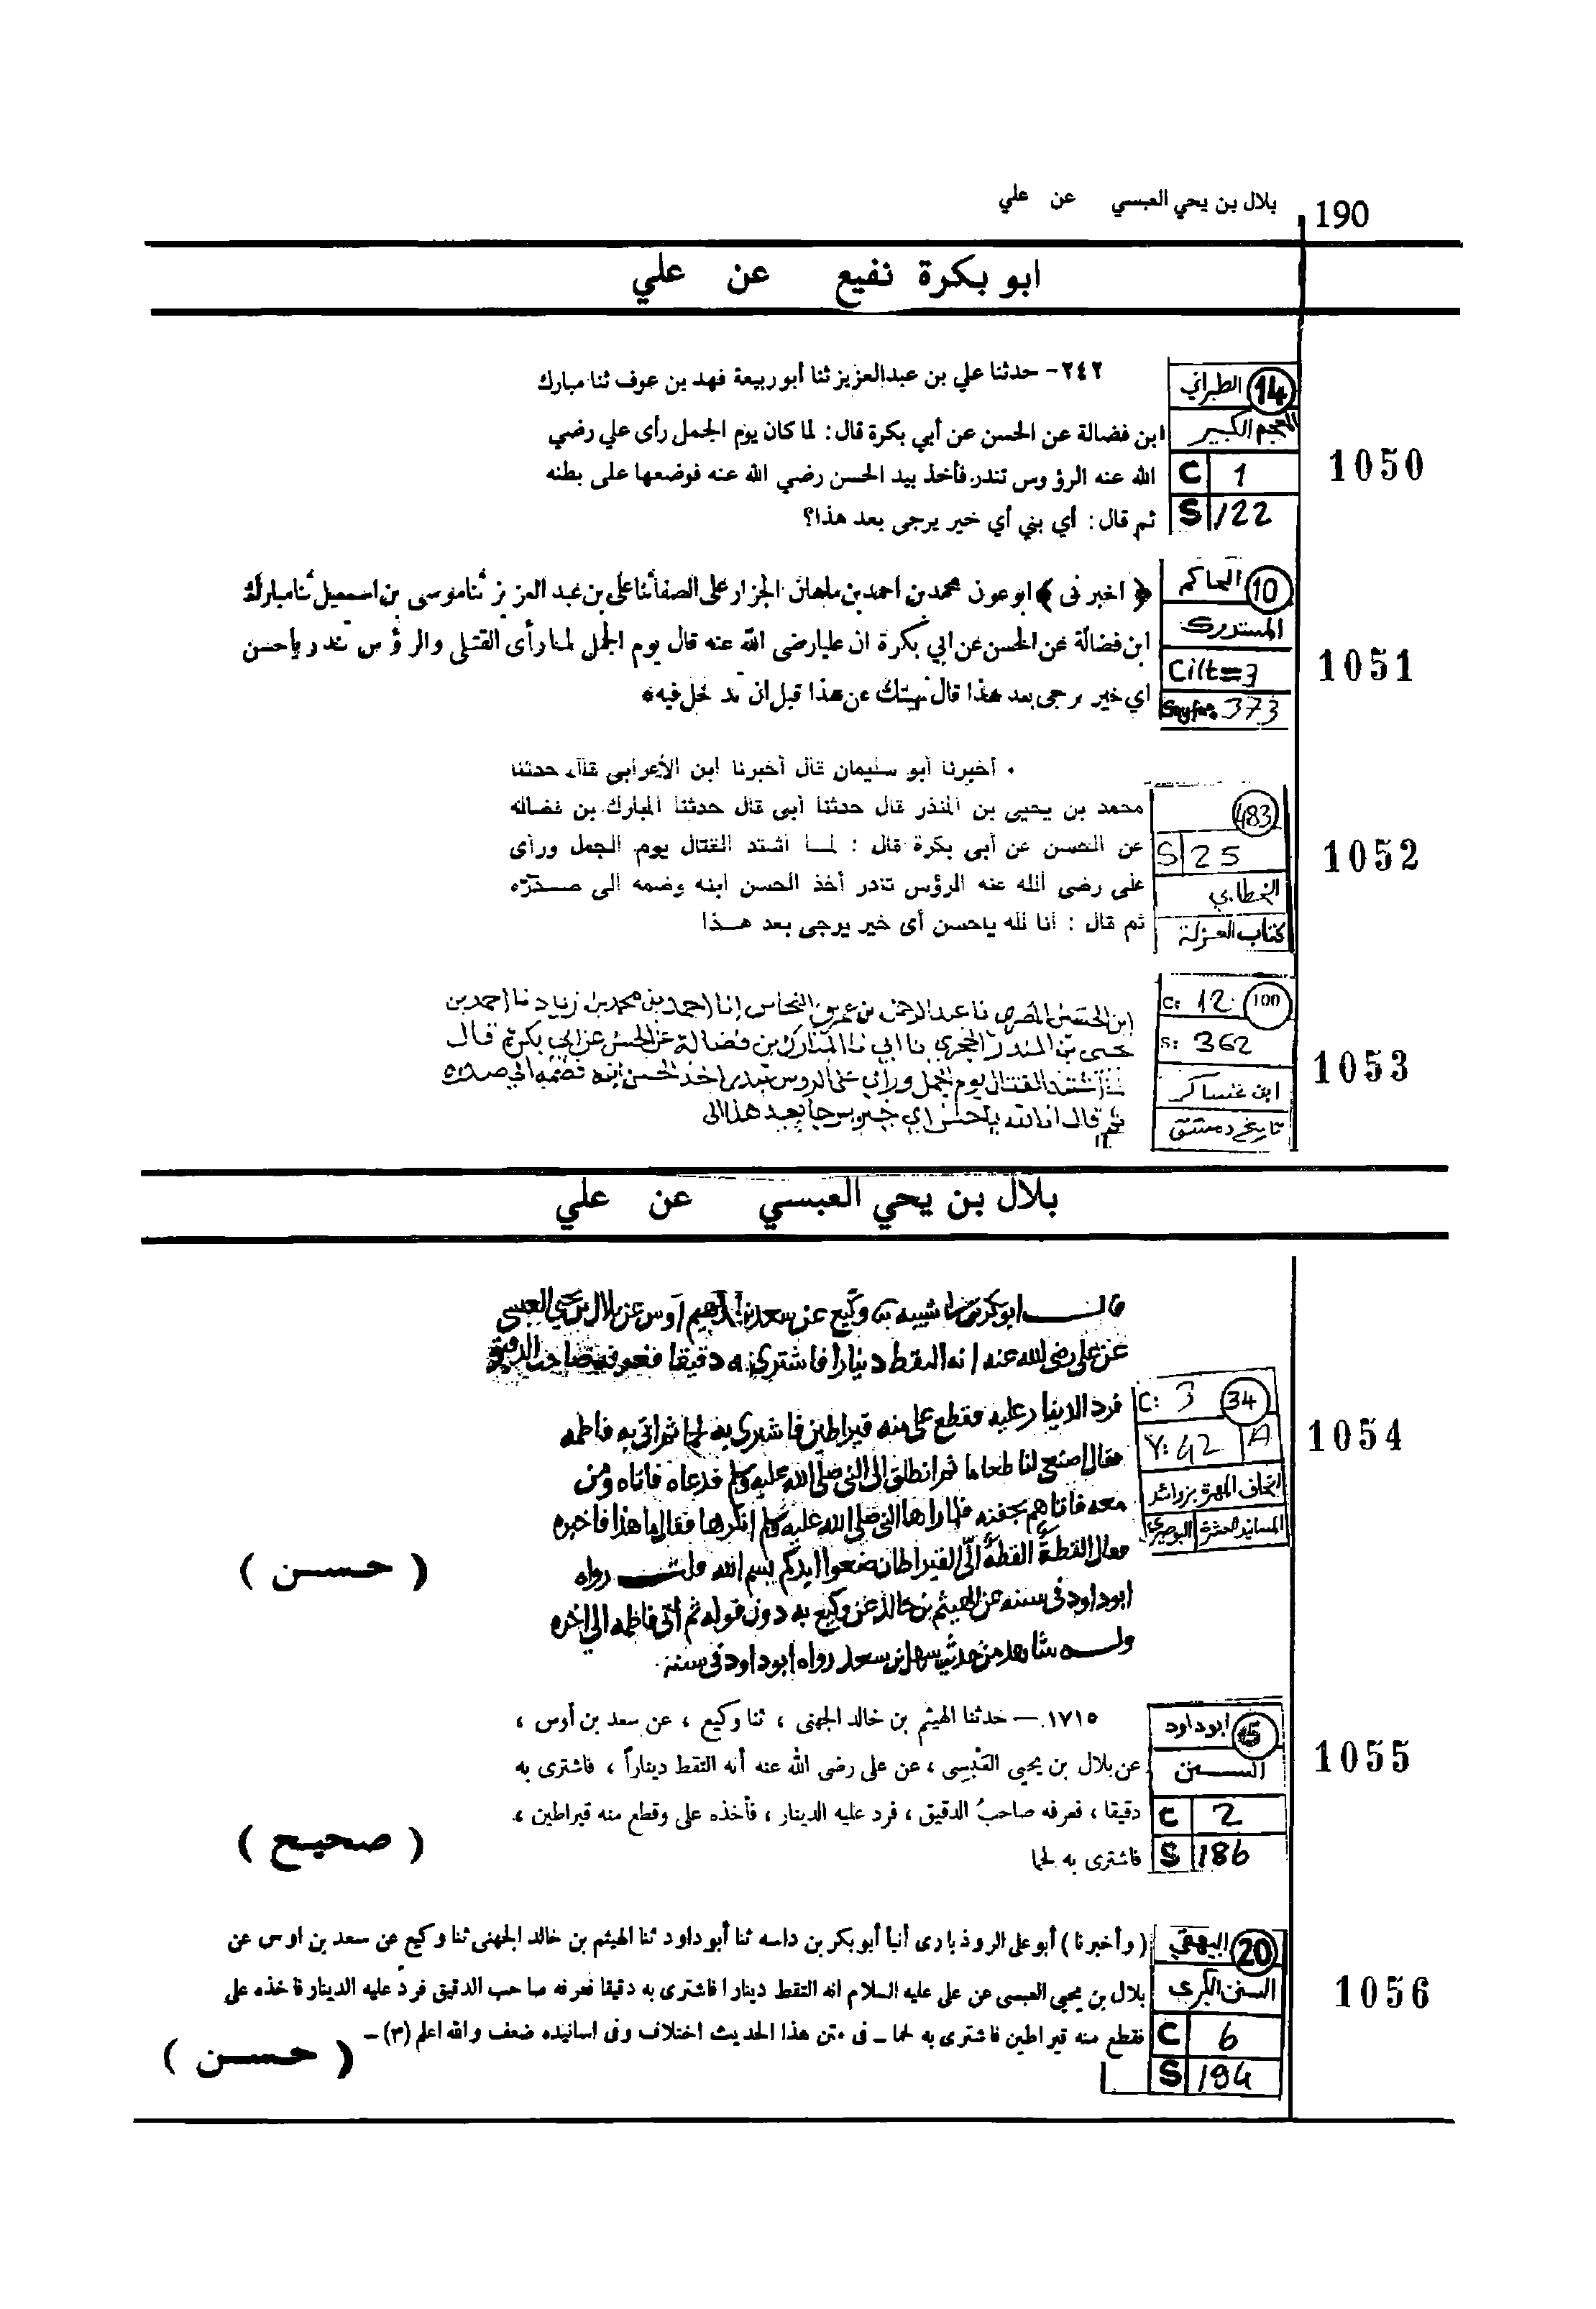 190 بلال بن يحي العبسي عن علي
ابو بكرة نفيع عن علي
1050
14 الطبراني
المعجم الكبير
C 1
S 122
٢٤٢- حدثنا علي بن عبدالعزيز ثنا أبو ربيعة فهد بن عوف ثنا مبارك
ابن فضالة عن الحسن عن أبي بكرة قال: لما كان يوم الجمل رأى علي رضي
الله عنه الرؤوس تندر فأخذ بيد الحسن رضي الله عنه فوضعها على بطنه
ثم قال: أي بني أي خير يرجى بعد هذا؟
1051
10 الحاكم
المستدرك
Cilt=3
Sayfa. 373
﴿ اخبرنى ﴾ ابو عون محمد بن احمد بن ماهان الجزار على الصفا ثنا على بن عبد العزيز ثنا موسى بن اسمعيل ثنا مبارك
ابن فضالة عن الحسن عن ابي بكرة ان عليا رضى الله عنه قال يوم الجمل لما رأى القتلى والرؤس تندر ياحسن
اي خير يرجى بعد هذا قال نهيتك عن هذا قبل ان تدخل فيه*
1052
483
S 25
الخطابي
كتاب العزلة
• أخبرنا أبو سليمان قال أخبرنا ابن الأعرابى قال حدثنا
محمد بن يحيى بن المنذر قال حدثنا أبى قال حدثنا المبارك بن فضاله
عن الحسن عن أبى بكرة قال : لما اشتد القتال يوم الجمل ورأى
على رضى الله عنه الرؤس تندر أخذ الحسن ابنه وضمه الى صدره
ثم قال : انا لله ياحسن أى خير يرجى بعد هذا
1053
C: 12 100
S: 362
ابن عساكر
تاريخ دمشق
ابن الحسن المصرى نا عبد الرحمن بن عمر بن النحاس انا احمد بن محمد بن زياد نا احمد بن
يحيى بن المنذر الحجري نا ابي نا المبارك بن فضالة عن الحسن عن ابي بكرة قال
لما اشتد القتال يوم الجمل ورأى علي الروس تندر اخذ الحسن ابنه فضمه الى صدره
ثم قال انا لله يا حسن اي خير يرجا بعد هذا
بلال بن يحي العبسي عن علي
1054
C: 3 34
Y: 42 A
اتحاف المهرة بزوائد
المسانيد العشرة البوصيري
قال ابو بكر بن ابي شيبه وكيع عن سعد بن اوس عن بلال بن يحيى العبسي
عن علي رضي الله عنه انه التقط دينارا فاشترى به دقيقا فعرفه صاحب الدقيق
فرد الدينار عليه فقطع علي منه قيراطين فاشترى به لحما ثم اتى به فاطمه
فقال اصنعي لنا طعاما ثم انطلق الى النبي صلى الله عليه وسلم فدعاه فاتاه ومن
معه فاتاهم بجفنه فلما راها النبي صلى الله عليه وسلم انكرها فقال ما هذا فاخبره
فقال القطة القطة الى القيراطان ضعوا ايديكم بسم الله قلت رواه
ابو داود في سننه عن الهيثم بن خالد عن وكيع به دون قوله ثم أتى فاطمه الى اخره
وله شاهد من حديث سهل بن سعد رواه ابو داود في سننه.
( حسن )
1055
15 ابو داود
السنن
C 2
S 186
١٧١٥ — حدثنا الهيثم بن خالد الجهنى ، ثنا وكيع ، عن سعد بن أوس ،
عن بلال بن يحيى العَبْسِى ، عن على رضى الله عنه أنه التقط ديناراً ، فاشترى به
دقيقا ، فعرفه صاحبُ الدقيق ، فرد عليه الدينار ، فأخذه على وقطع منه قيراطين ،
فاشترى به لحما
( صحيح )
1056
20 البيهقي
السنن الكبرى
C 6
S 194
( وأخبرنا ) أبو على الروذبارى أنبأ أبو بكر بن داسه ثنا أبو داود ثنا الهيثم بن خالد الجهنى ثنا وكيع عن سعد بن اوس عن
بلال بن يحيى العبسى عن على عليه السلام انه التقط دينارا فاشترى به دقيقا فعرفه صاحب الدقيق فرد عليه الدينار فاخذه على
فقطع منه قيراطين فاشترى به لحما – فى متن هذا الحديث اختلاف وفى اسانيده ضعف والله اعلم (٣) –
( حسن )